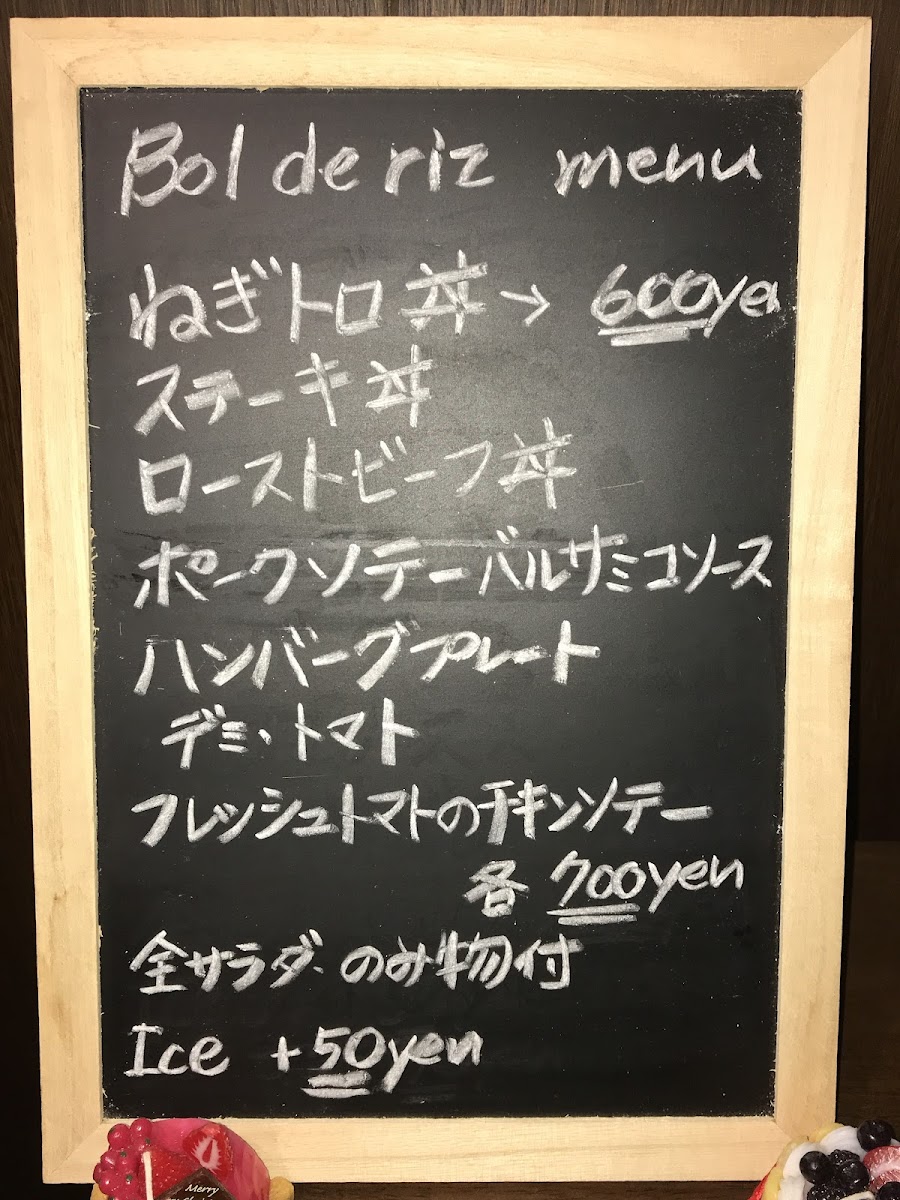 Bol de riz menu
ねぎトロ丼→ 600yen
ステーキ丼
ローストビーフ丼
ポークソテーバルサミコソース
ハンバーグプレート
デミ・トマト
フレッシュトマトのチキンソテー
各 700yen
全サラダ、のみ物付
Ice +50yen
Merry